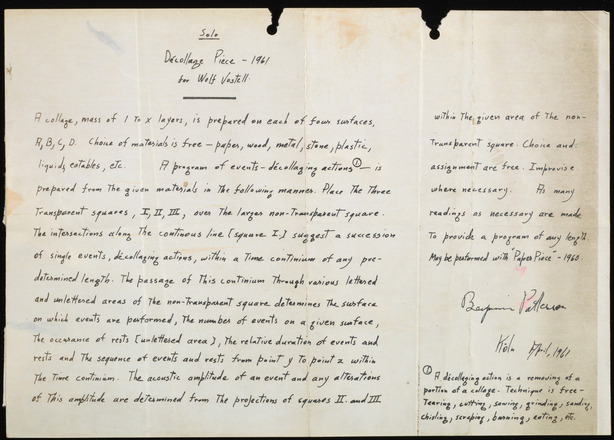 Solo
Décollage Piece - 1961
for Wolf Vostell
A collage, mass of 1 to x layers, is prepared on each of four surfaces,
A, B, C, D. Choice of materials is free — paper, wood, metal, stone, plastic,
liquids, eatables, etc. A program of events - décollaging actions ① — is
prepared from the given materials in the following manner. Place the three
transparent squares, I, II, III, over the larger non-transparent square.
The intersections along the continous line [square I,] suggest a succession
of single events, décollaging actions, within a time continuum of any pre-
determined length. The passage of this continuum through various lettered
and unlettered areas of the non-transparent square determines the surface
on which events are performed, the number of events on a given surface,
the occurance of rests [unlettered area], the relative duration of events and
rests and the sequence of events and rests from point y to point z within
the time continuum. The acoustic amplitude of an event and any alterations
of this amplitude are determined from the projections of squares II and III
within the given area of the non-
transparent square. Choice and
assignment are free. Improvise
where necessary. As many
readings as necessary are made
to provide a program of any length.
May be performed with "Paper Piece" - 1960.
Benjamin Patterson
Köln April, 1961
① A décollaging action is a removing of a
portion of a collage. Technique is free -
tearing, cutting, sawing, grinding, sanding,
chisling, scraping, burning, eating, etc.